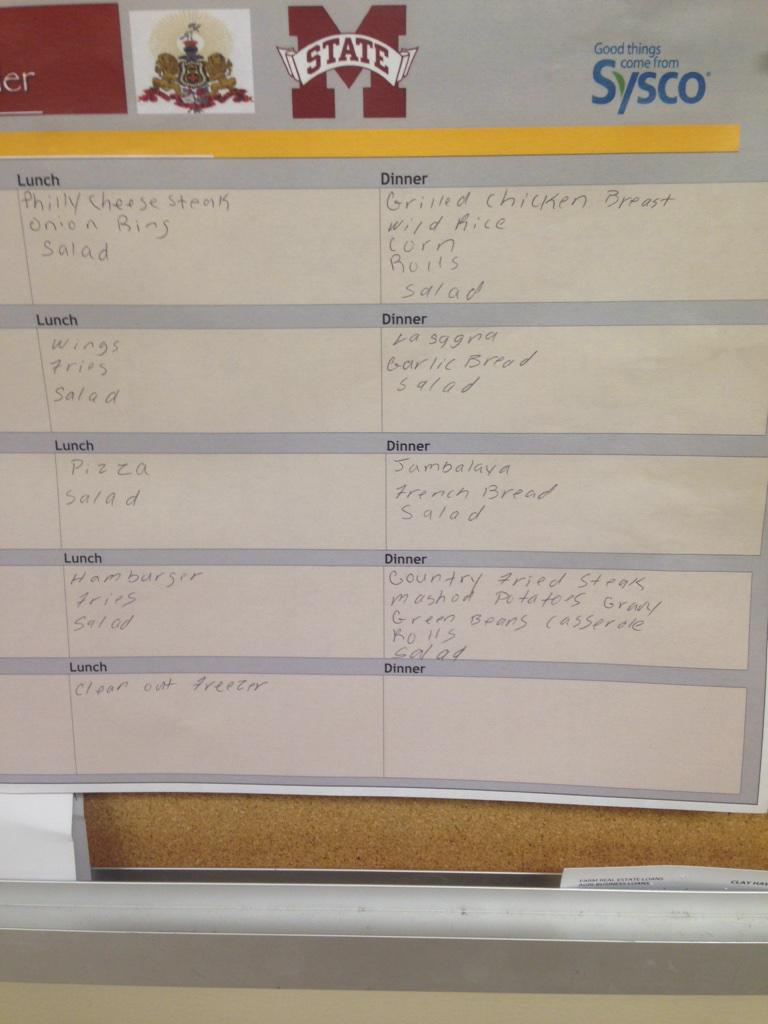 er
STATE
Good things
come from
Sysco
Lunch
Philly Cheese Steak
Onion Ring
Salad
Dinner
Grilled Chicken Breast
Wild Rice
Corn
Rolls
Salad
Lunch
Wings
Fries
Salad
Dinner
Lasagna
Garlic Bread
Salad
Lunch
Pizza
Salad
Dinner
Jambalaya
French Bread
Salad
Lunch
Hamburger
Fries
Salad
Dinner
Country Fried Steak
Mashed Potatoes Gravy
Green Beans Casserole
Rolls
Salad
Lunch
Clean out Freezer
Dinner
FARM REAL ESTATE LOANS
AGRI-BUSINESS LOANS
CLAY HAY